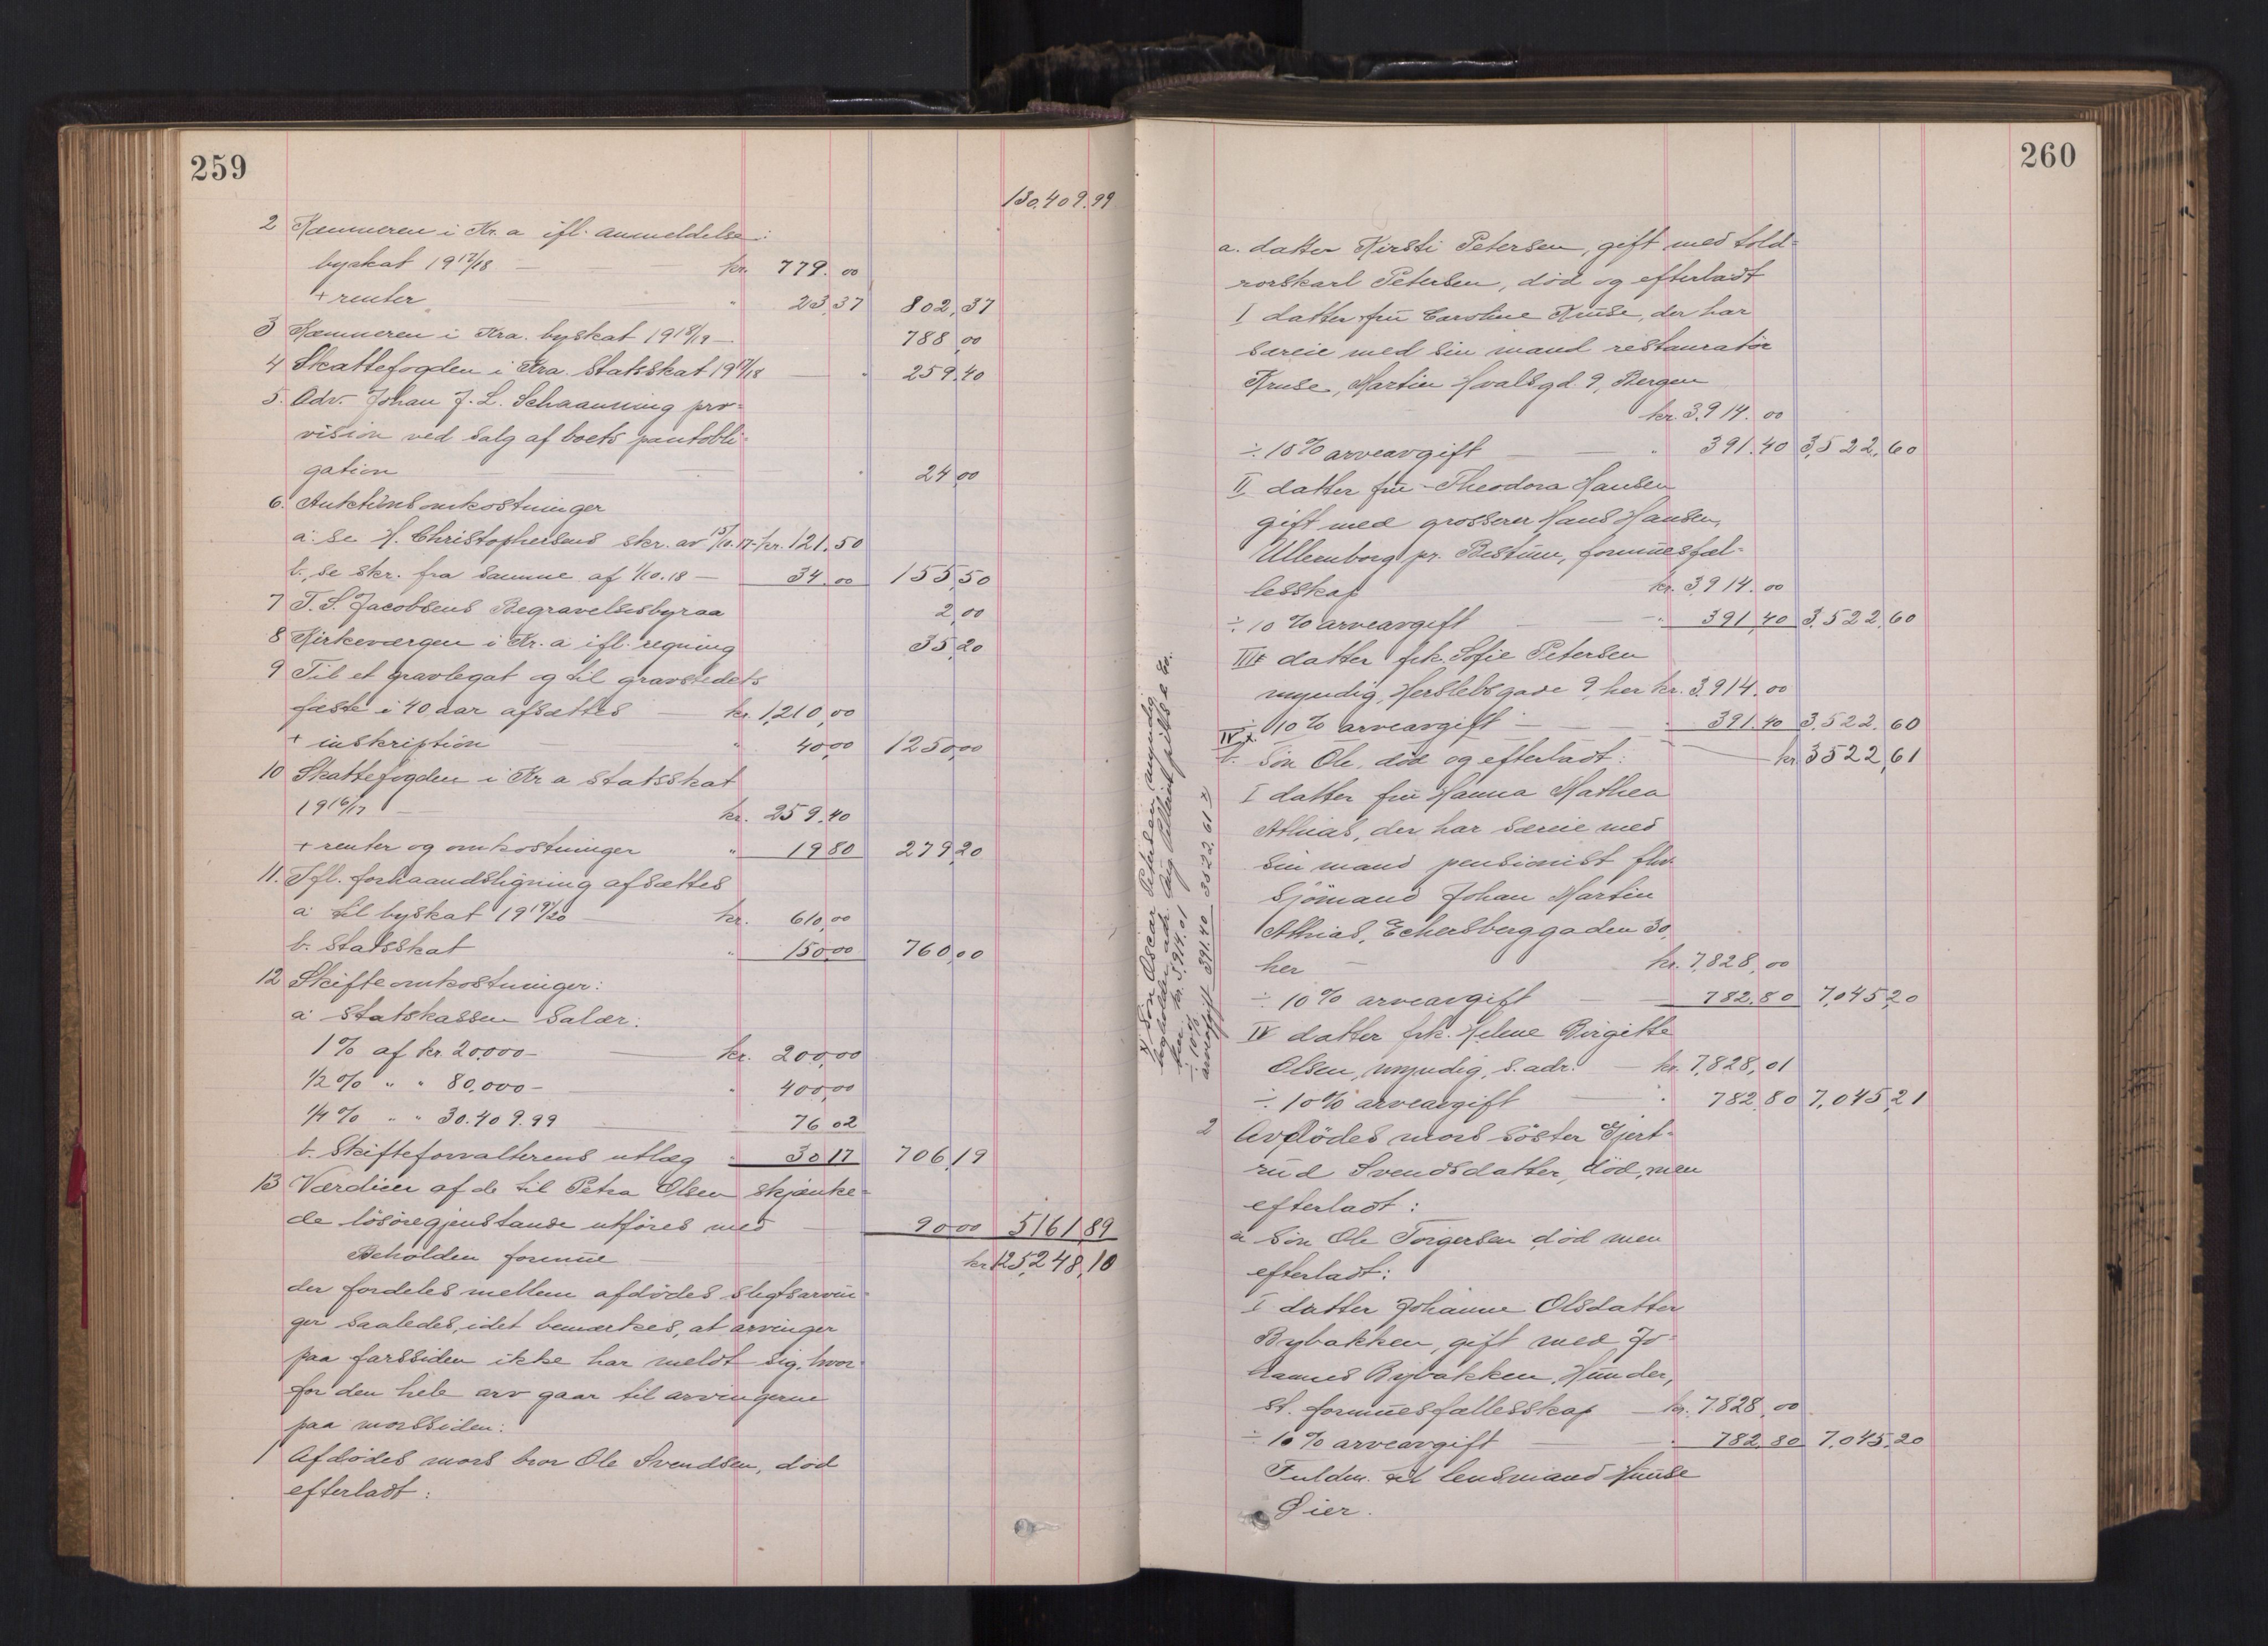 259
130.409.99
2 Kæmneren i Kr.a ifl. anmeldelse:
byskat 19 17/18 — — kr. 779.00
+ renter — " 23,37 802,37
3 Kæmneren i Kra. byskat 19 18/19 — 788,00
4 Skattefogden i Kra. Statsskat 19 17/18 — 259.40
5. Adv. Johan J. L. Schaanning pro-
vision ved salg af boets pantobli-
gation — — 24,00
6. Auktionsomkostninger
a. se H. Christophersens skr. av 15/10.17 - kr. 121.50
b., se skr. fra samme af 1/10.18 — 34.00 155,50
7 T. S. Jacobsens Begravelsesbyraa 2,00
8 Kirkeværgen i Kr.a ifl. regning 35,20
9 Til et gravlegat og til gravstedets
fæste i 40 aar afsættes — kr. 1,210,00
+ inskription — " 40,00 1250,00
10 Skattefogden i Kr a statsskat
19 16/17 — kr. 259.40
+ renter og omkostninger " 19 80 279,20
11. Ifl. forhaandsligning afsættes
a. til byskat 19 19/20 — kr. 610,00
b. Statsskat " 150,00 760,00
12 Skifteomkostninger:
a. Statskassen Salær:
1 % af kr. 20.000 — — kr. 200,00
1/2 % " " 80.000 — " 400,00
1/4 % " " 30.409.99 — 76 02
b. Skifteforvalterens utlæg " 30 17 706,19
13 Værdien af de til Petra Olsen skjænke-
de lösöregjenstande utföres med — 90 00 5161,89
Beholden formue — kr. 125,248,10
der fordeles mellem afdödes slegtsarvin-
ger saaledes, idet bemærkes, at arvinger
paa farssiden ikke har meldt sig, hvor-
for den hele arv gaar til arvingerne
paa morssiden:
1 Afdödes mors bror Ole Svendsen, död
efterladt:
260
a. datter Kirsti Petersen, gift med told-
rorskarl Petersen, död og efterladt
I datter fru Caroline Kruse, der har
særeie med sin mand restauratör
Kruse, Martin Hvalsgd. 9, Bergen
kr. 3,914.00
÷ 10% arveavgift — — " 391.40 3,522,60
II datter fru Theodora Hansen
gift med grosserer Hans Hansen,
Ullernborg pr. Bestum, formuesfæl-
lesskap kr. 3,914.00
÷ 10 % arveavgift — — " 391,40 3.522,60
III datter frk. Sofie Petersen
myndig, Herslebsgade 9 her kr. 3.914.00
÷ 10 % arveavgift — — " 391.40 3.522.60
IV x — kr 3522,61
b. Sön Ole, död og efterladt:
I datter fru Hanna Mathea
Athias, der har særeie med
sin mand pensionist fhv.
Sjömand Johan Martin
Athias, Eckersberggaden 30,
her — kr. 7,828,00
÷ 10 % arveavgift — — 782.80 7,045,20
IV datter frk. Helene Birgitte
Olsen, myndig, s. adr. — kr. 7,828,01
÷ 10% arveavgift — " 782,80 7,045,21
2 Avdödes mors söster Gjert-
rud Svendsdatter, död, men
efterladt:
a Sön Ole Torgersen död men
efterladt:
I datter Johanne Olsdatter
Bybakken, gift med Jo-
hannes Bybakken, Hunder,
st. formuesfællesskap — kr. 7828,00
÷ 10 % arveavgift — " 782,80 7,045,20
Fuldm. til lensmand Huuse
Öier.
x Sön Oscar Petersen, myndig
adr.
her kr. 3,914.01
÷ 10 %
arveafgift 391.40 3522,61 x